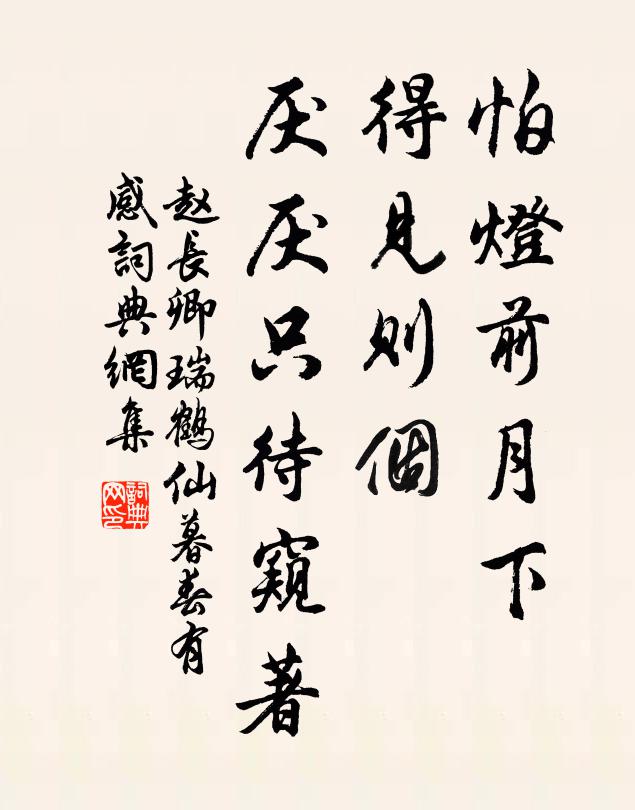 怕燈前月下
得見則個
厌厌只待窺著
赵長卿瑞鶴仙暮春有
感詞典網集
詞典
网印